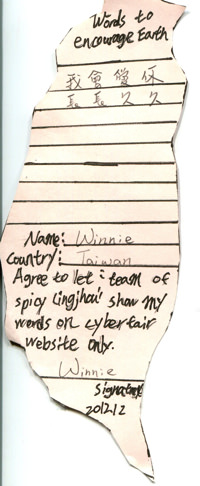 Words to
encourage Earth
我會愛你
長長久久
Name: Winnie
Country: Taiwan
Agree to let "team of
spicy Lingjhou" show my
words on cyberfair
website only.
Winnie
Signature
2012.12